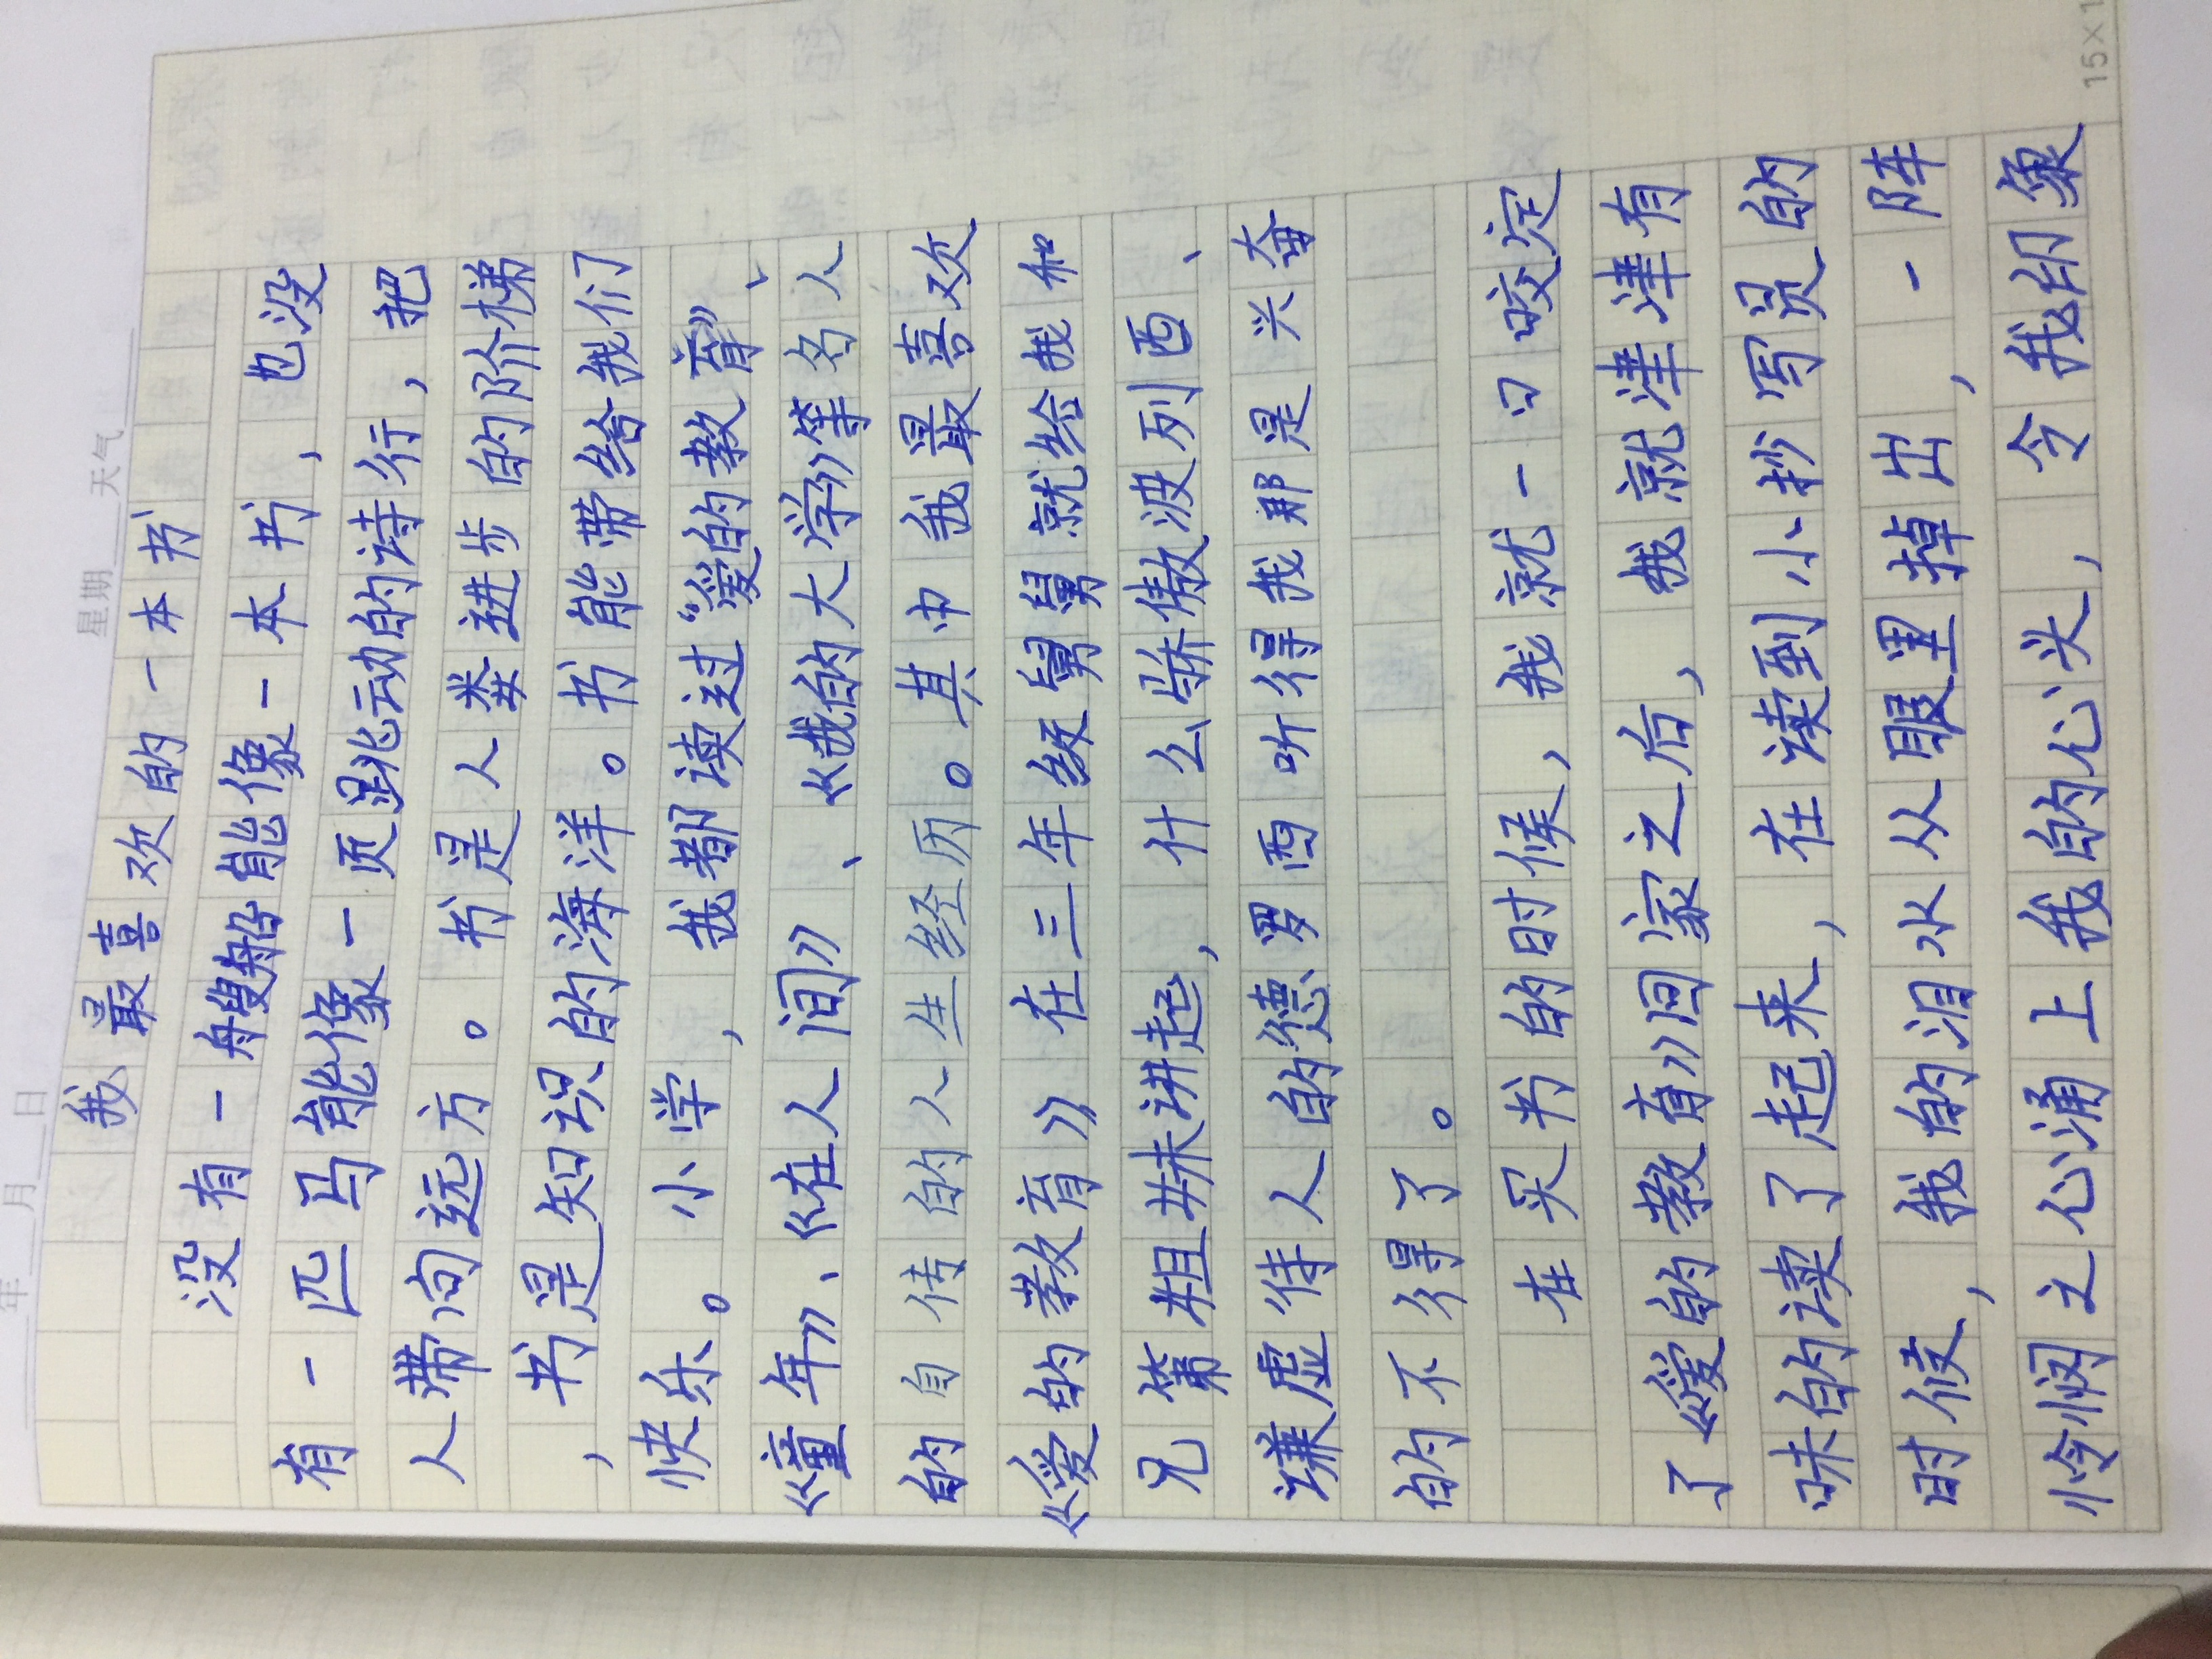 年 月 日 星期 天气
我最喜欢的一本书
没有一艘船能像一本书，也没
有一匹马能像一页跳动的诗行，把
人带向远方。书是人类进步的阶梯
，书是知识的海洋。书能带给我们
快乐。小学，我都读过“爱的教育》、
《童年》、《在人间》、《我的大学》等名人
的自传的人生经历。其中我最喜欢
《爱的教育》在三年级舅舅就给我和
兄第姐妹讲起，什么骄傲波列西、
谦虚待人的德罗西听得我那是兴奋
的不得了。
在买书的时候，我就一口咬定
了《爱的教育》回家之后，我就津津有
味的读了起来，在读到小抄写员的
时候，我的泪水从眼里掉出，一阵
怜悯之心涌上我的心头，令我印象
15×1